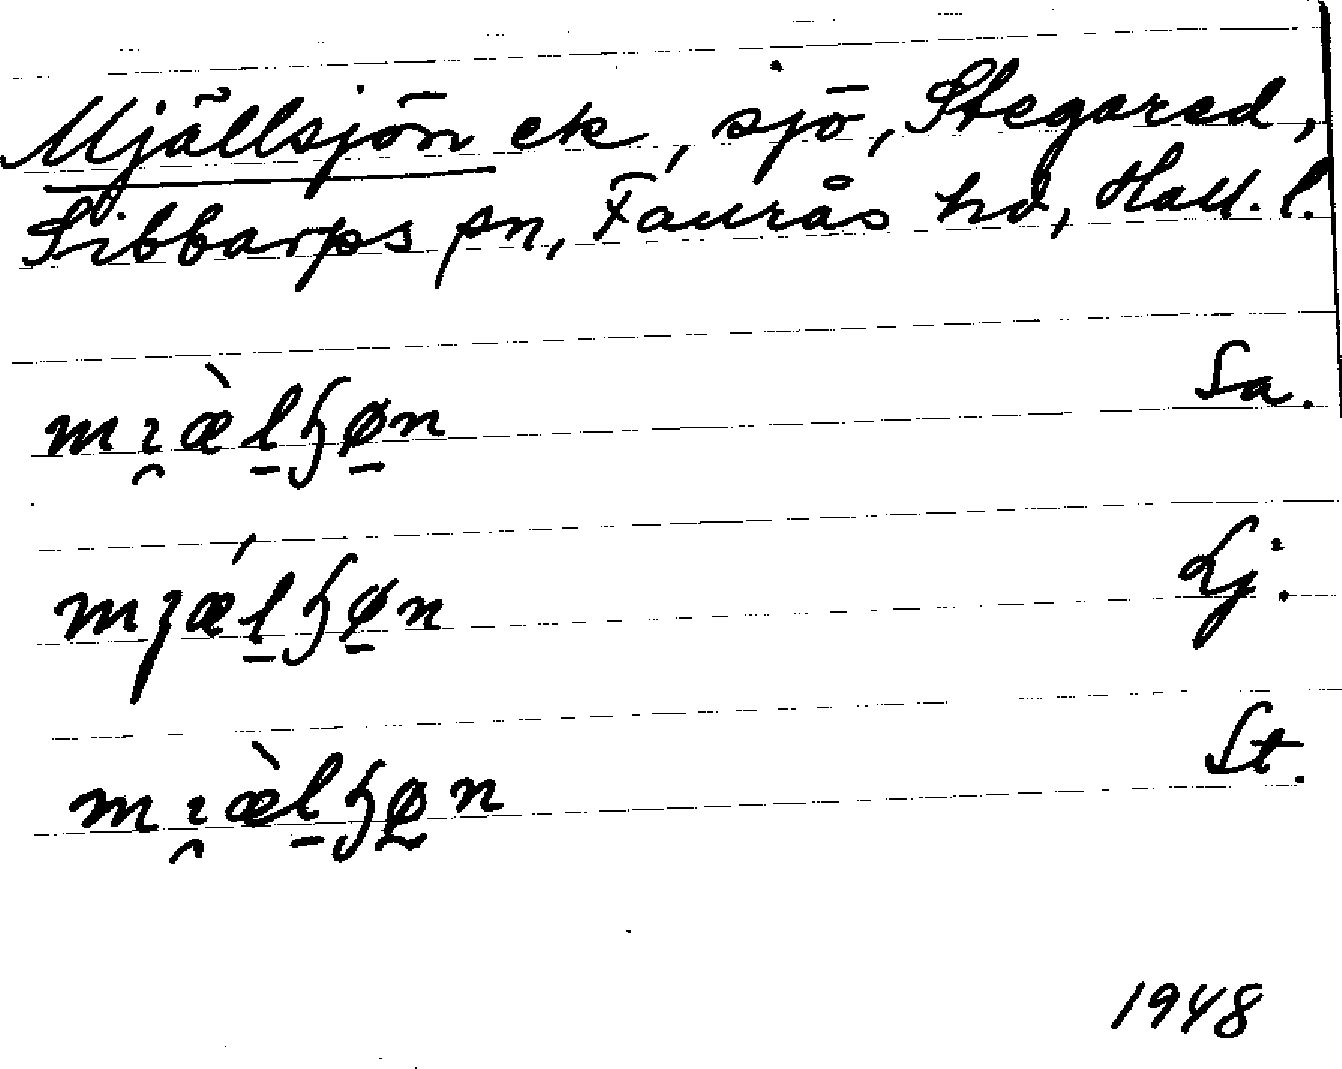 Mjällsjön ek, sjö, Stegared,
Sibbarps sn, Faurås hd, Hall. l.
mı̯æ̀l̠ɧø̠n Sa.
mȷǽl̠ɧø̠n Lj.
mı̯æ̀l̠ɧø̠n St.
1948